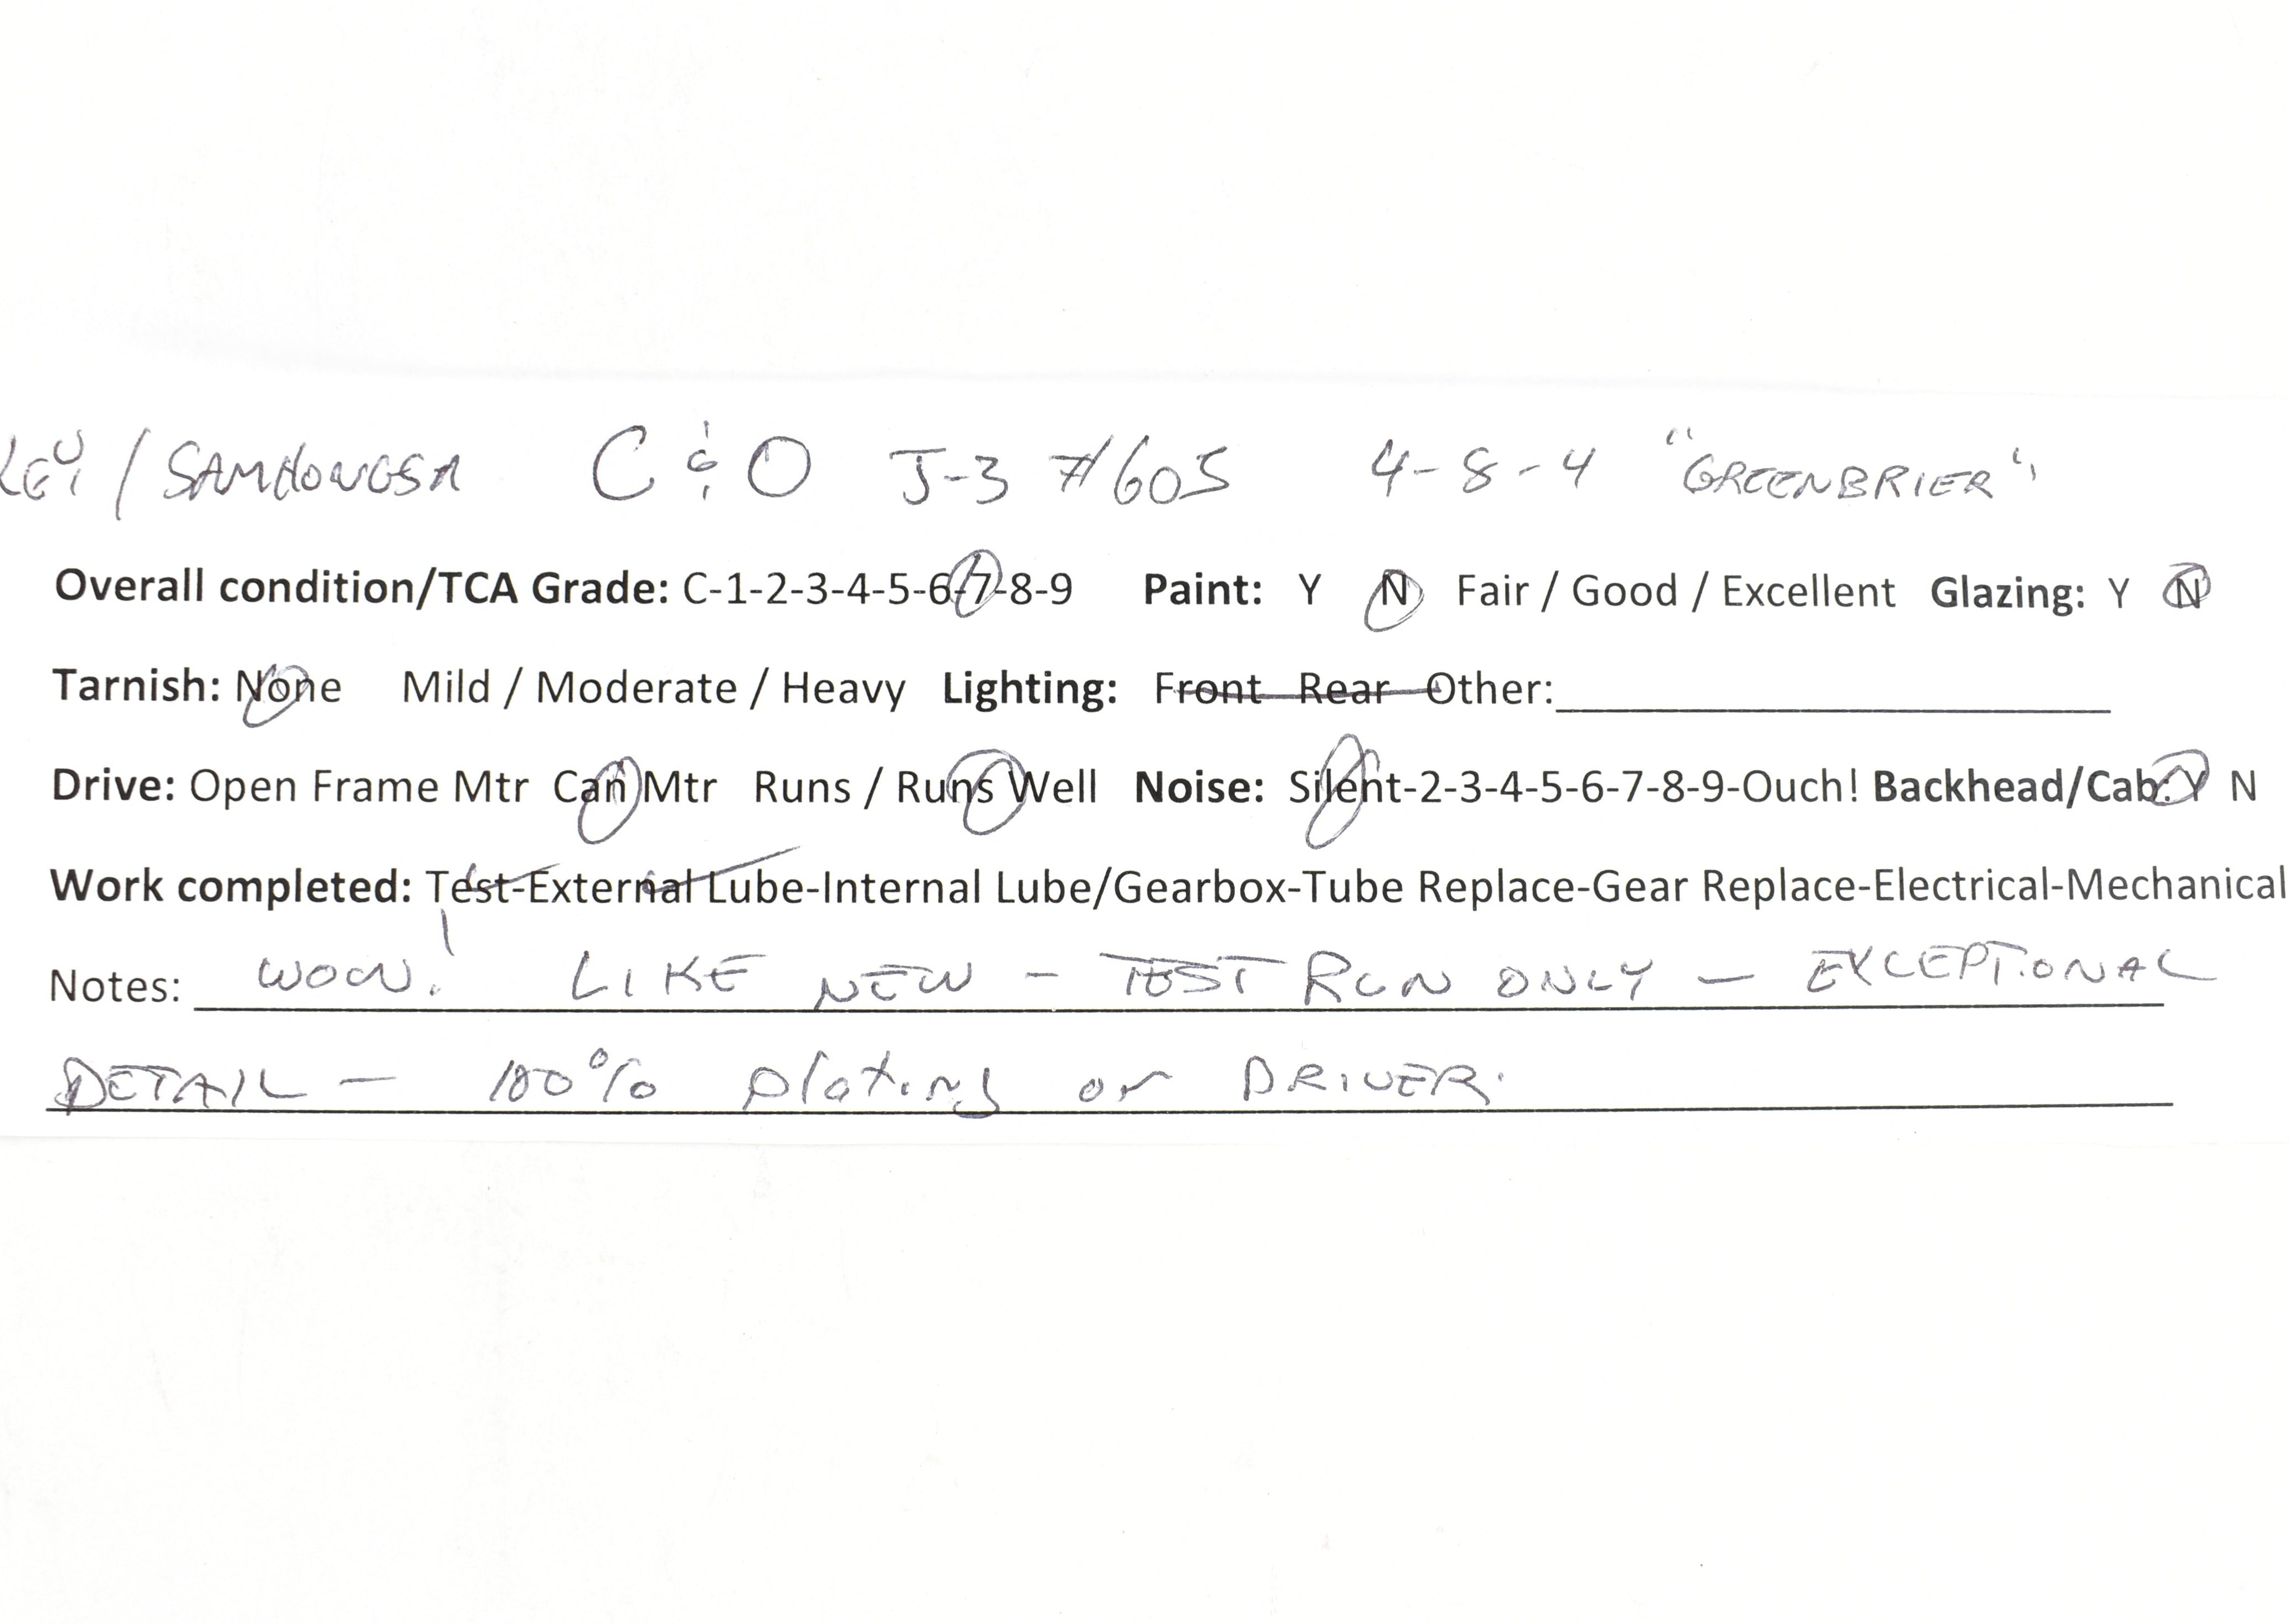 KEY / SAMHONGSA C & O J-3 #605 4-8-4 "GREENBRIER"
Overall condition/TCA Grade: C-1-2-3-4-5-6-7-8-9 Paint: Y N Fair / Good / Excellent Glazing: Y N
Tarnish: None Mild / Moderate / Heavy Lighting: Front Rear Other:
Drive: Open Frame Mtr Can Mtr Runs / Runs Well Noise: Silent-2-3-4-5-6-7-8-9-Ouch! Backhead/Cab: Y N
Work completed: Test-External Lube-Internal Lube/Gearbox-Tube Replace-Gear Replace-Electrical-Mechanical
Notes: WOW! LIKE NEW - TEST RUN ONLY - EXCEPTIONAL
DETAIL - 100% plating on DRIVER.